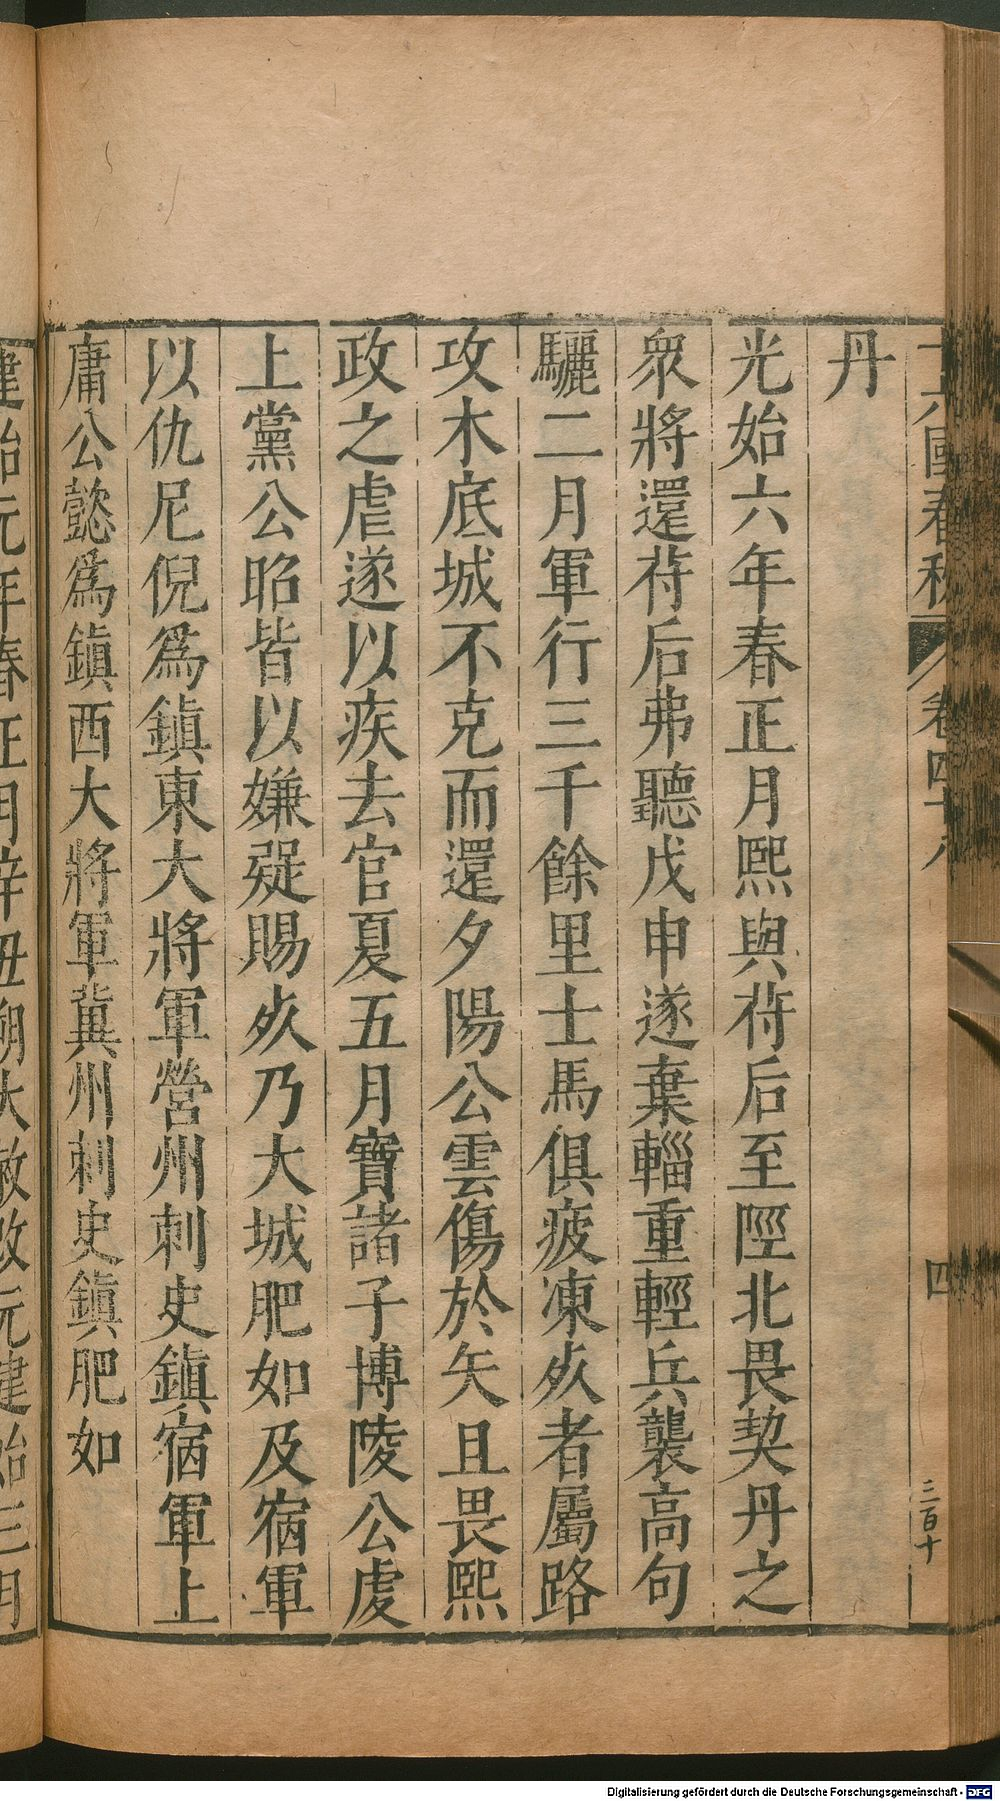 十六國春秋 卷四十八 四 三百十
丹
光始六年春正月熙與苻后至陘北畏契丹之
衆將還苻后弗聽戊申遂棄輜重輕兵襲高句
驪二月軍行三千餘里士馬俱疲凍死者屬路
攻木底城不克而還夕陽公雲傷於矢且畏熙
政之虐遂以疾去官夏五月寶諸子博陵公虔
上黨公昭皆以嫌疑賜死乃大城肥如及宿軍
以仇尼倪爲鎮東大將軍營州刺史鎮宿軍上
庸公懿爲鎮西大將軍冀州刺史鎮肥如
建始元年春正月辛丑朔大赦改元建始三月
Digitalisierung gefördert durch die Deutsche Forschungsgemeinschaft - DFG